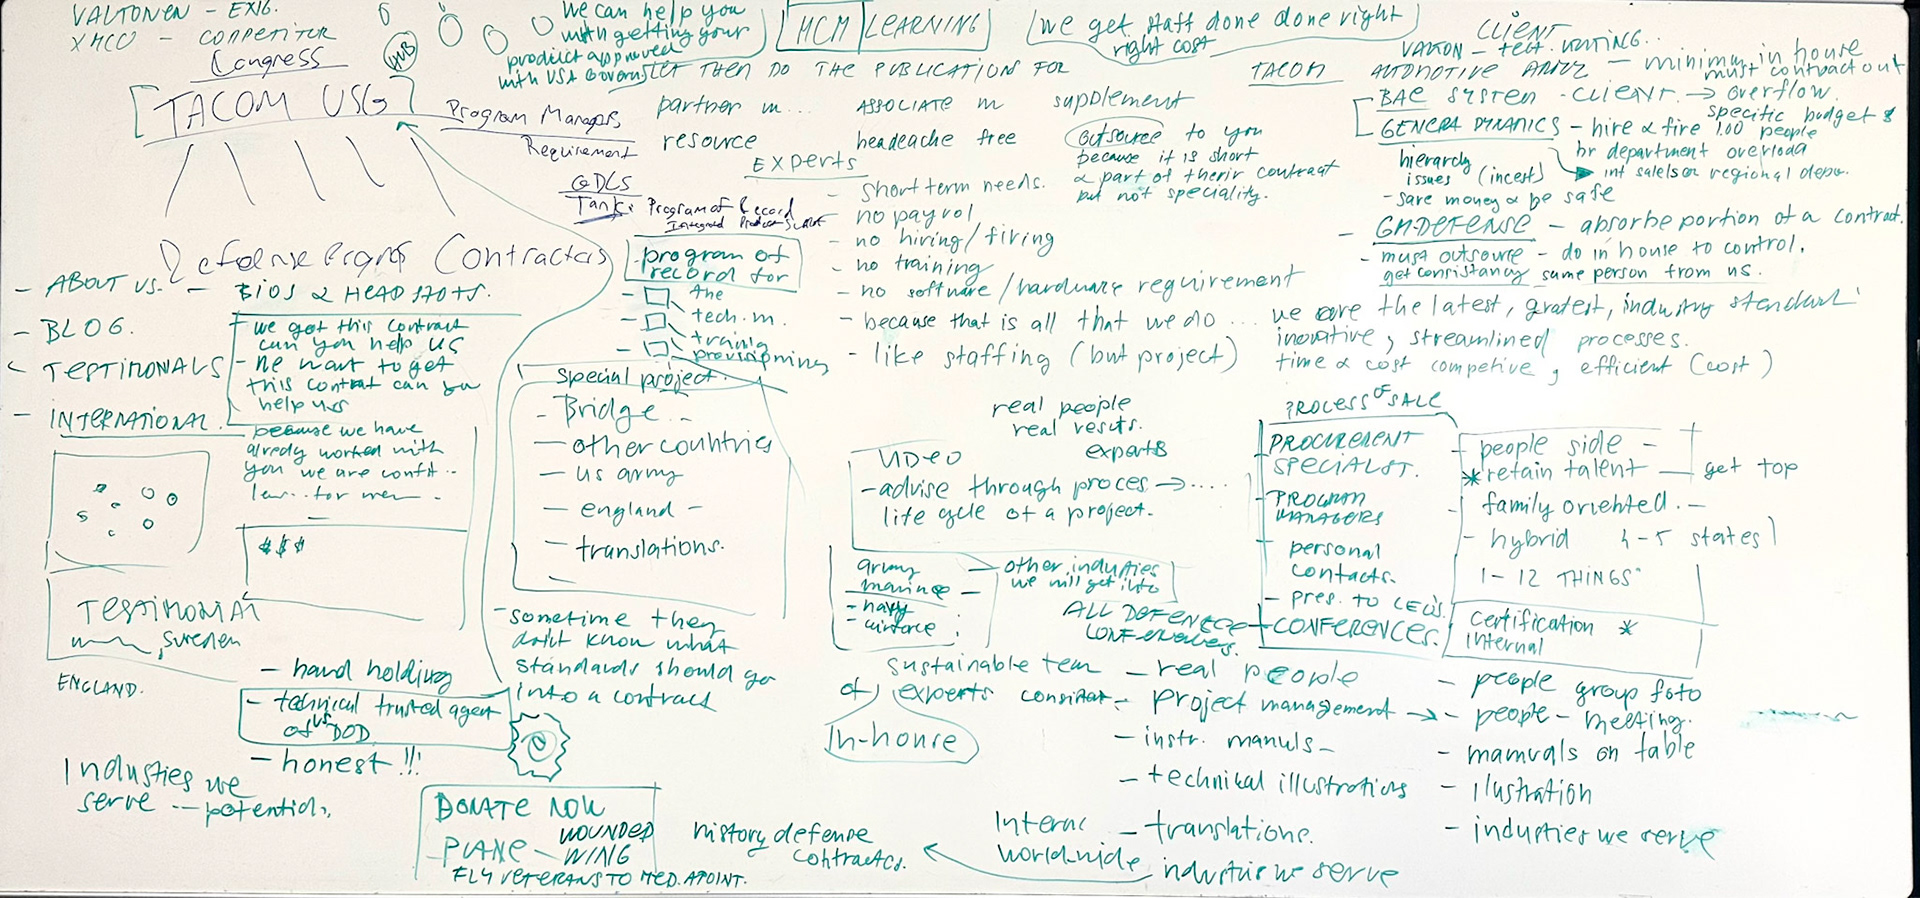 VALTONEN - EXIG.
XMCO - COMPETITOR
Congress
HUB
TACOM USG
Program Managers
Requirement
We can help you
with getting your
product approved
with USA Government
HCM LEARNING
LET THEN DO THE PUBLICATIONS FOR
TACOM
we get staff done done right
right cost
CLIENT
VALTON - tech. writing..
AUTOMOTIVE ARMZ - minimum in house
must contract out
- BAE SYSTEM - CLIENT. → overflow.
- GENERA DYNAMICS - hire & fire 100 people
specific budget &
hr department overload
hierarchy
issues (incest)
int salels or regional depa.
- save money & be safe
- GM DEFENSE - absorbe portion of a contract.
- must outsource - do in house to control.
get consistancy same person from us.
partner m...
ASSOCIATE m
supplement
resource
headeache free
outsource to you
because it is short
& part of therir contraat
but not speciality.
EXPERTS
- short term needs.
- no payrol
- no hiring/firing
- no training
- no software/hardware requirement
- because that is all that we do ...
- like staffing (but project)
we are the latest, gratest, industry standard
inovative, streamlined processes.
time & cost competive, efficient (cost)
GDLS
Tank: Program of Record
Integrated Product Support
program of
record for
- the
tech. m.
- trainig
- provisipming
Contractors
- ABOUT US. - BIOS & HEAD SHOTS.
- BLOG.
- TESTIMONALS
- INTERNATIONAL.
- we got this contract
can you help us
- we want to get
this contrat can you
help uss
because we have
alredy worked with
you we are
$$$
TESTIMONIAL
, Sweden
ENGLAND.
special project.
- Bridge..
- other countries
- us army
- england -
- translations.
- sometime they
don't know what
standards should go
into a contract
- hand holding
- technical trusted agent
of US DOD
- honest!!!
Industies we
serve --- potential.
DONATE NOW
PLANE - WOUNDED
WING
FLY VETERANS TO MED. APOINT.
real people
real resuts.
experts
VIDEO
- advise through proces →....
life cycle of a project.
army
marines
- navy
- airforce
- other industies
we will get into
ALL DEFENCE
CONFERENCES.
PROCESS OF SALE
PROCUREMENT
SPECIALIST.
- PROGRAM
MANAGERS
- personal
contacts.
- pres. TO CEO'S.
- CONFERENCES.
- people side -
* retain talent - get top
- family oriented. -
- hybrid 4-5 states
1-12 THINGS
Certification *
internal
sustainable team
of experts consistant
In-house
- real people
- project management →
- instr. manuls -
- technical illustrations
- translations.
industries we serve
Internac
worldwide
history defense
contracts.
- people group foto
- people - meeting.
- manuals on table
- ilustration
- industies we serve